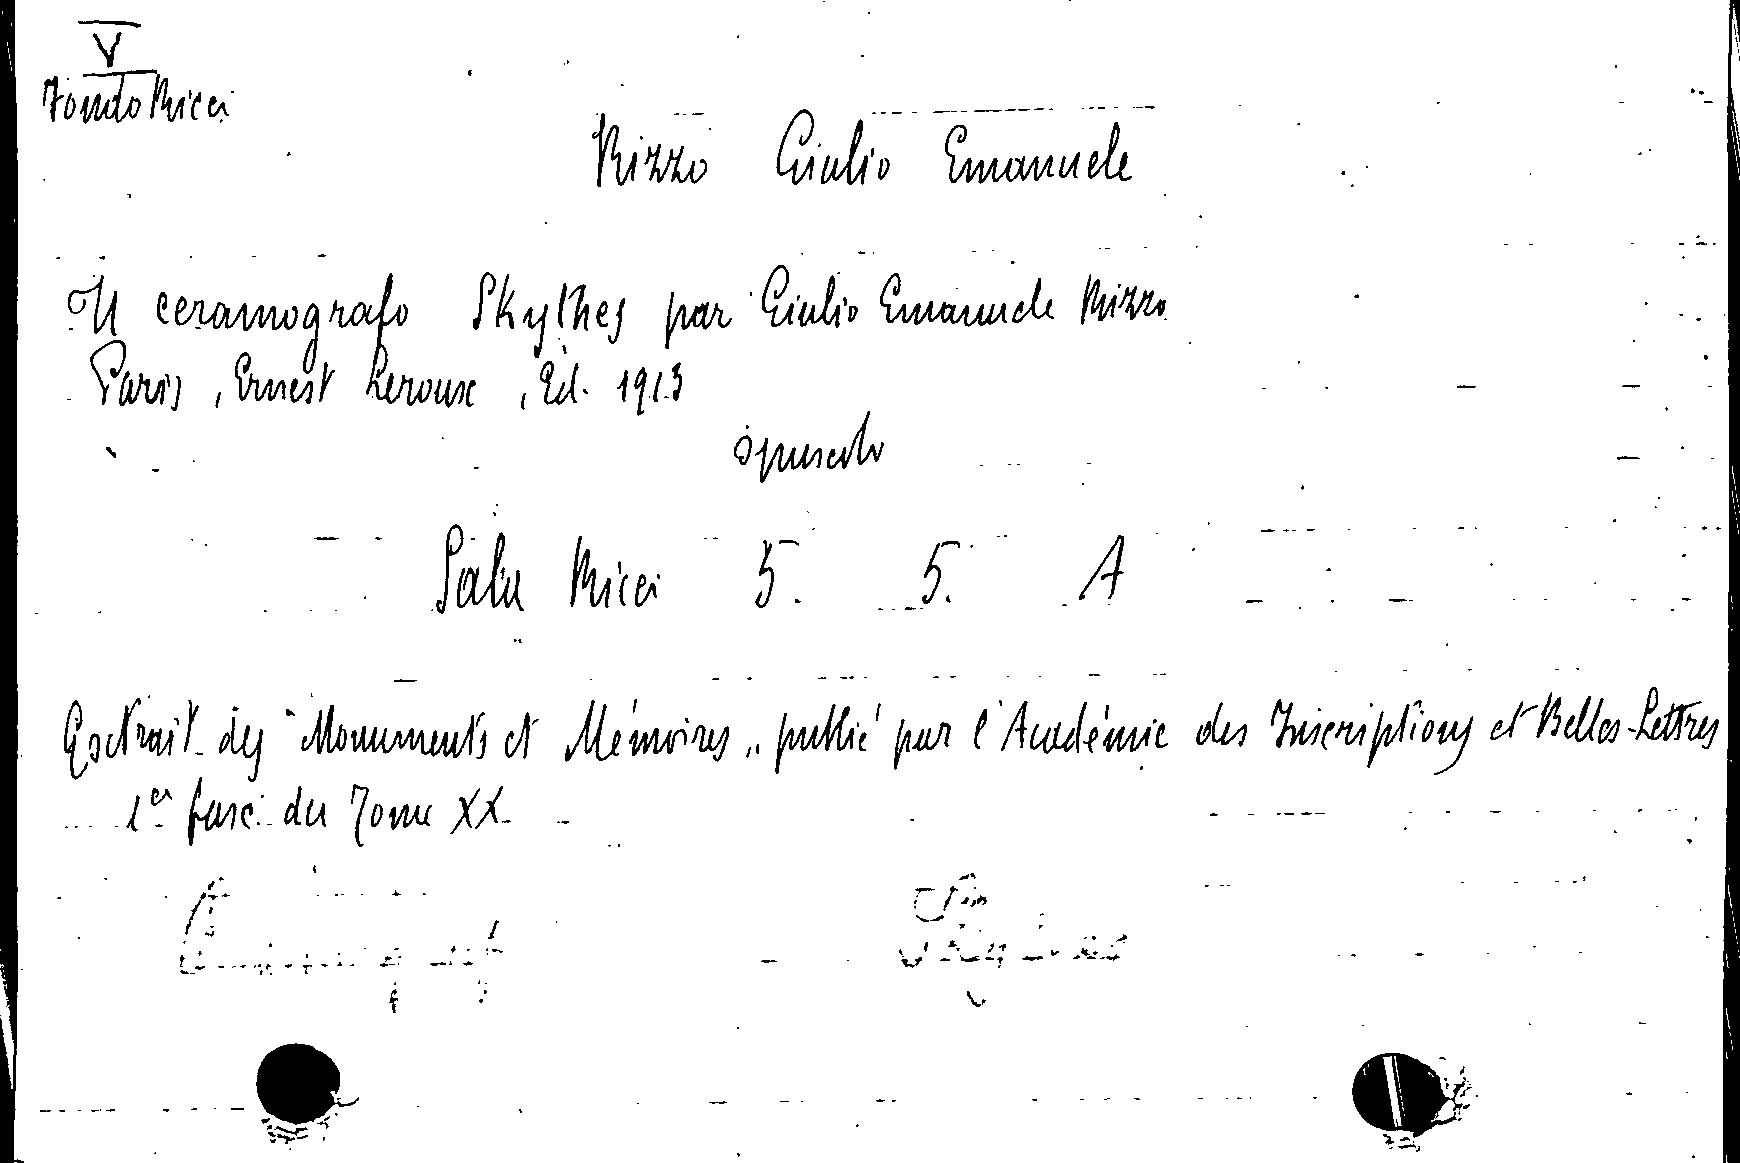 V
Fondo Ricci
Rizzo Giulio Emanuele
Il ceramografo Skythes par Giulio Emanuele Rizzo
Paris, Ernest Leroux, Ed. 1913
opuscolo
Sala Ricci 5. 5. A
Extrait des "Monuments et Mémoires" publié par l'Académie des Inscriptions et Belles-Lettres
1er fasc. du Tome XX